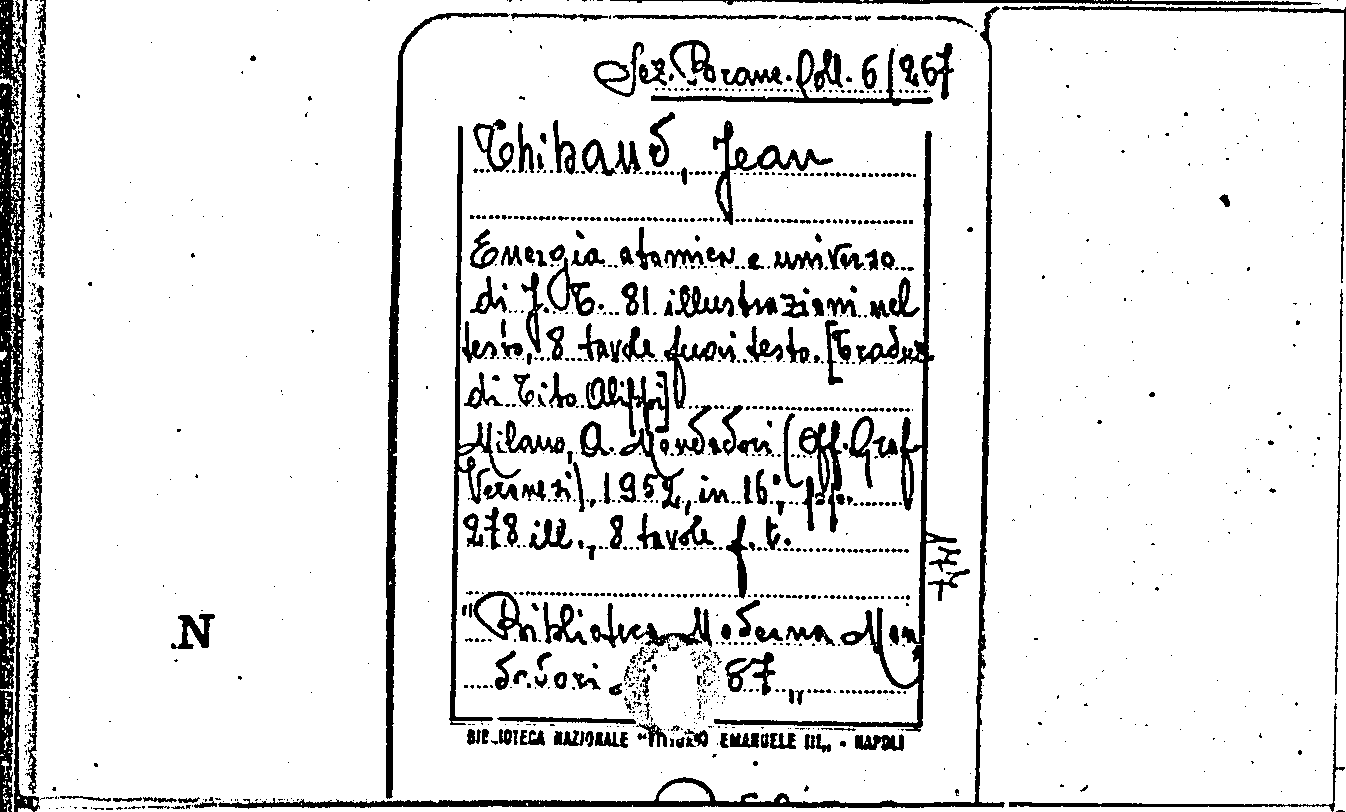 Sez. Poране. Coll. 6/267
Thibaud, Jean
Energia atomica e universo
di J. T. 81 illustrazioni nel
testo, 8 tavole fuori testo. [Traduz.
di Tito Alippi]
Milano, A. Mondadori (Off. Graf.
Veronesi), 1952, in 16°, pp.
278 ill., 8 tavole f. t.
"Biblioteca Moderna Mon
dadori 87"
N
BIBLIOTECA NAZIONALE "VITTORIO EMANUELE III„ - NAPOLI